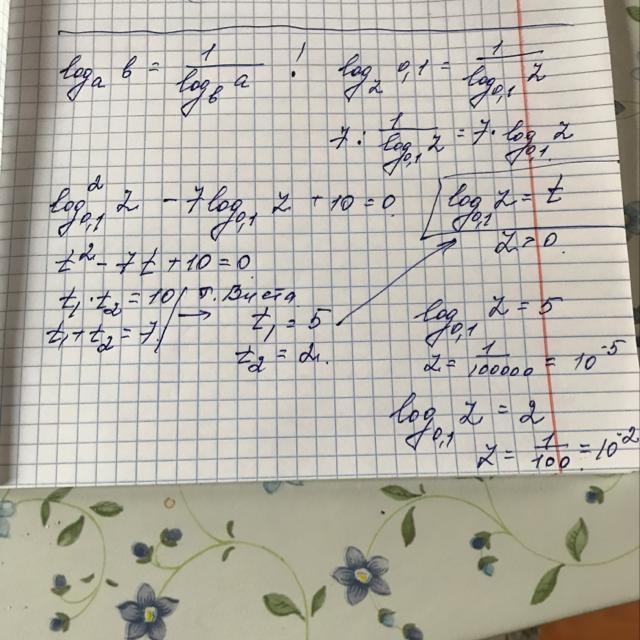 log_a b = 1/(log_b a) ! log_z 0,1 = 1/(log_0,1 z)
7 : 1/(log_0,1 z) = 7 · log_0,1 z
log²_0,1 z - 7 log_0,1 z + 10 = 0
log_0,1 z = t
z > 0.
t² - 7t + 10 = 0
t₁ · t₂ = 10
t₁ + t₂ = 7
→ т. Виета
t₁ = 5
t₂ = 2.
log_0,1 z = 5
z = 1/100000 = 10⁻⁵
log_0,1 z = 2
z = 1/100 = 10⁻²